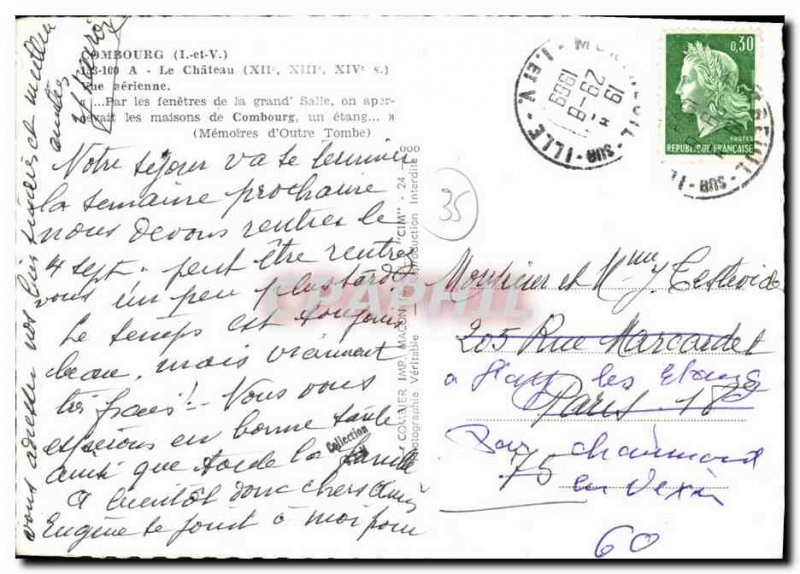 COMBOURG (I.-et-V.)
- Le Château (XIIe, XIIIe, XIVe s.)
Vue aérienne.
« ...Par les fenêtres de la grand' Salle, on aper-
cevait les maisons de Combourg, un étang... »
(Mémoires d'Outre Tombe)
Notre séjour va se terminer
la semaine prochaine
nous devons rentrer le
4 sept. peut être rentrez
vous un peu plus tard
Le temps est toujours
beau, mais vraiment
très frais! Nous vous
espérons en bonne santé
ainsi que toute la famille
A bientôt donc chers amis
Eugène se joint à moi pour
vous adresser nos bien sincères et meilleures
amitiés
COMBIER IMP. MACON "CIM"
Photographie Véritable - Reproduction Interdite
35
SUR-ILLE
I. ET V.
19 H
29-8
1969
0,30
POSTES
REPUBLIQUE FRANÇAISE
SUR-IL
CPAPHIL
Collection
Monsieur et Mme
205 Rue Marcadet
à les Etangs
Paris 18e
par Chaumont
75
en Vexin
60